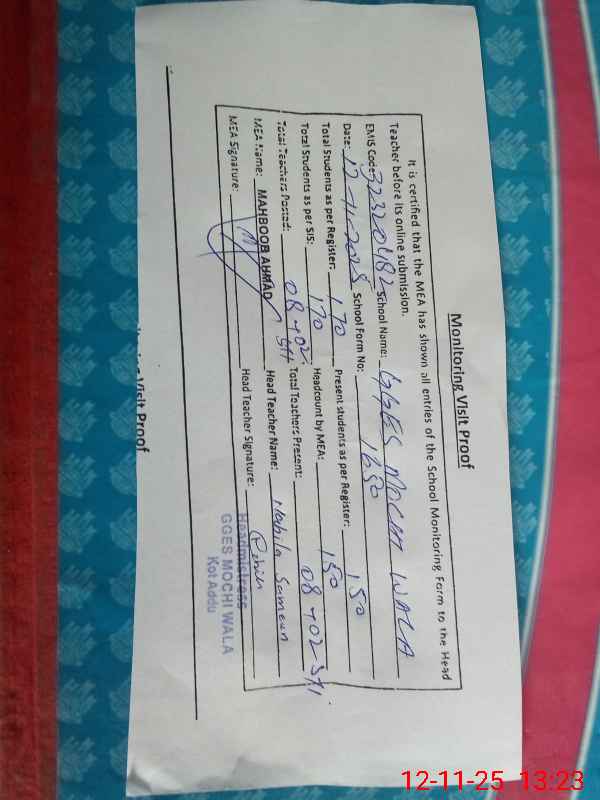 Monitoring Visit Proof
It is certified that the MEA has shown all entries of the School Monitoring Form to the Head
Teacher before its online submission.
EMIS Code: 32320182 School Name: GGES MOCHI WALA
Date: 12-11-2025 School Form No: 1650
Total Students as per Register: 170 Present students as per Register: 150
Total Students as per SIS: 170 Headcount by MEA: 150
Total Teachers Posted: 08+02 STI Total Teachers Present: 08+02 STI
MEA Name: MAHBOOB AHMAD Head Teacher Name: Nabila
MEA Signature: Head Teacher Signature:
Headmistress
GGES MOCHI WALA
Kot Addu
Visit Proof
12-11-25 13:23